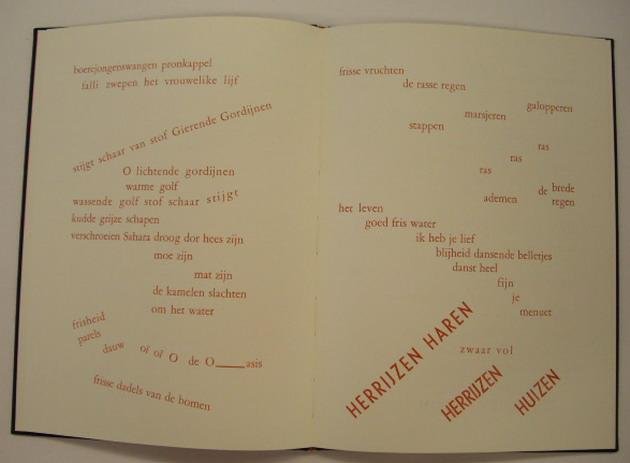 boerejongenswangen pronkappel
falli zwepen het vrouwelike lijf
stijgt schaar van stof Gierende Gordijnen
O lichtende gordijnen
warme golf
wassende golf stof schaar stijgt
kudde grijze schapen
verschroeien Sahara droog dor hees zijn
moe zijn
mat zijn
de kamelen slachten
om het water
frisheid
parels
dauw of of O de O____asis
frisse dadels van de bomen
frisse vruchten
de rasse regen
galopperen
marsjeren
stappen
ras
ras
ras
de brede
ademen regen
het leven
goed fris water
ik heb je lief
blijheid dansende belletjes
danst heel
fijn
je
menuet
HERRIJZEN HAREN
zwaar vol
HERRIJZEN
HUIZEN